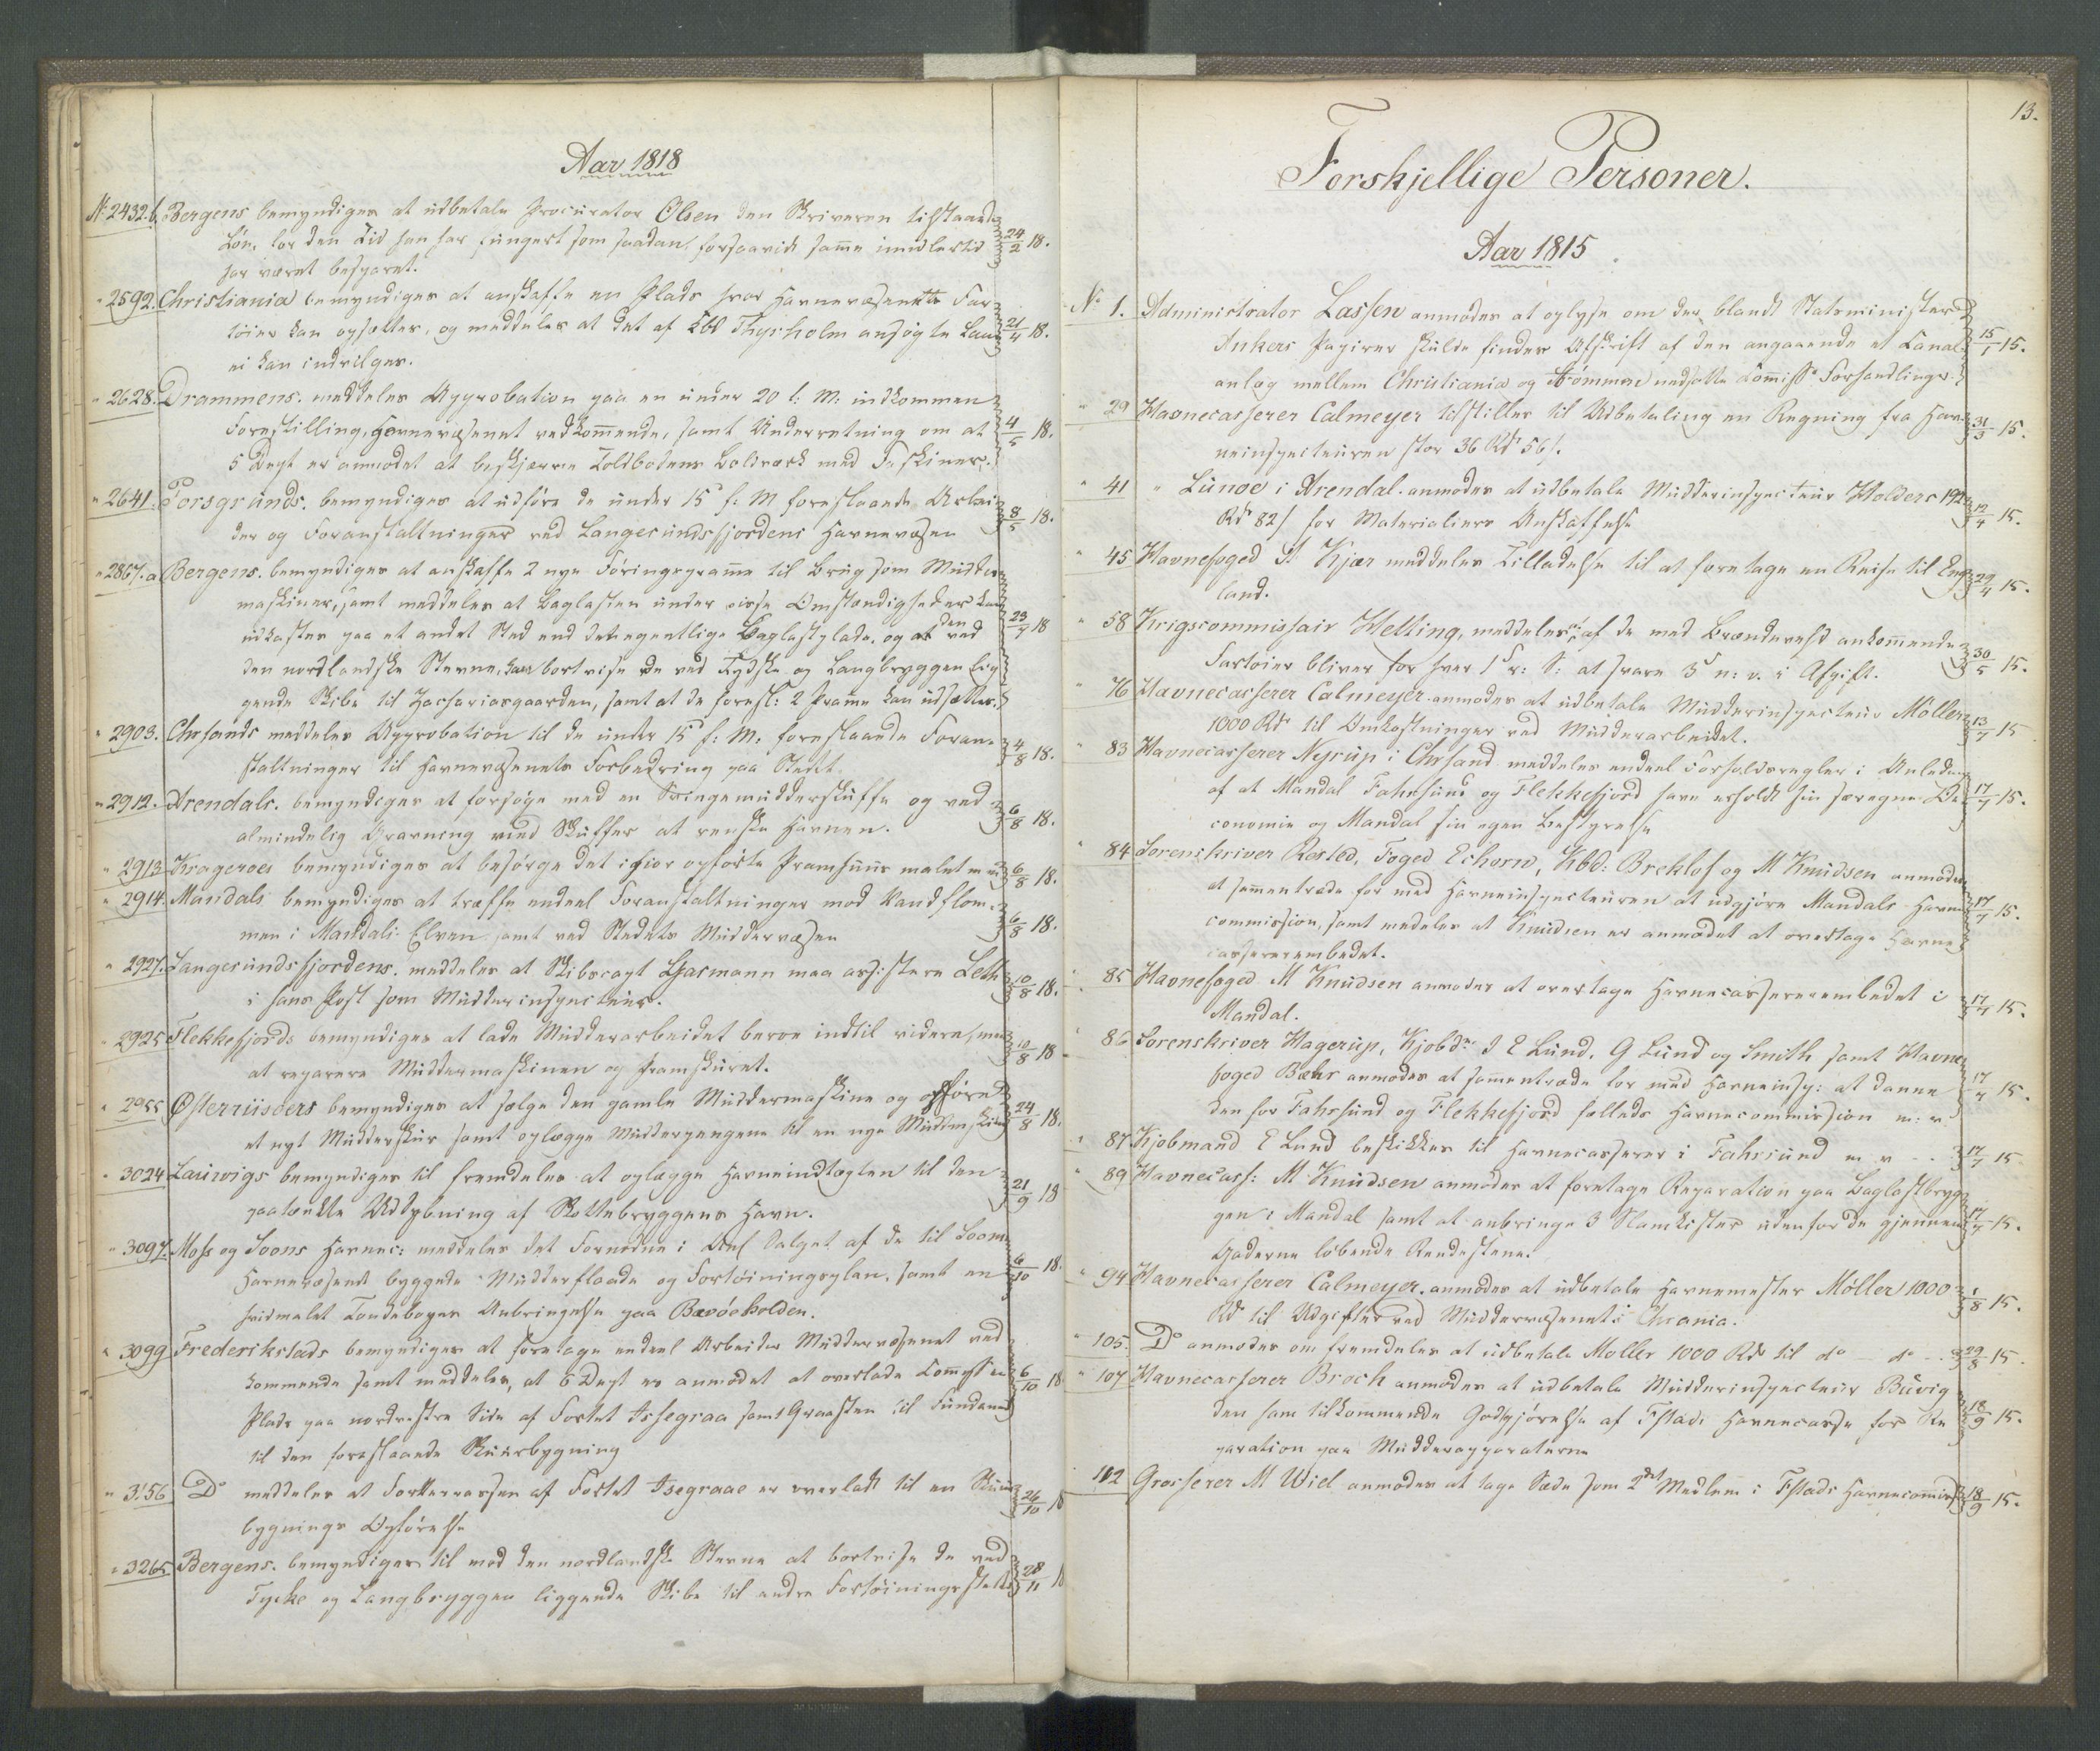 Aar 1818
No 2432.b. Bergens bemyndiges at udbetale Procurator Olsen den Skriveren tilstaaede
Løn, for den Tid han har fungeret som saadan, forsaavidt samme imidlertid 24/2 18.
har været besparet.
" 2592. Christiania bemyndiges at anskaffe en Plads hvor Havnevæsenets Far-
tøier kan opsættes, og meddeles at det af Kbd Thyrholm ansøgte Laan 21/4 18.
ei kan indvilges.
" 2628. Drammens. meddeles Approbation paa en under 20 l: M: indkommen
Forestilling, Havnevæsenet vedkommende, samt Underretning om at 4/5 18.
5 Dept er anmodet at beskjærme Toldbodens Bolværk med Faskiner.
" 2641. Porsgrunds. bemyndiges at udføre de under 15 f: M foreslaaede Arbei-
der og Foranstaltninger ved Langesundsfjordens Havnevæsen 8/5 18.
" 2867.a Bergens. bemyndiges at anskaffe 2 nye Føringspramme til Brug som Mudder
maskiner, samt meddeles at Baglasten under visse Omstændigheder kan
udkastes paa et andet Sted end det egentlige Baglastplads, og at den ved 23/7 18
den nordlandske Stevne, kan bortvise de ved Tydske og Langbryggen lig-
gende Skibe til Zachariasgaarden, samt at de foresl: 2 Pramme kan udsættes.
" 2903. Chrsands meddeles Approbation til de under 15 f: M: foreslaaede Foran-
staltninger til Havnevæsenets Forbedring paa Stedet. 4/8 18.
" 2912. Arendals. bemyndiges at forsøge med en Svingemudderskuffe og ved
almindelig Gravning med Skuffer at renske Havnen. 6/8 18.
" 2913 Krageroes bemyndiges at besørge det ifior opførte Pramhuus malet m v 6/8 18.
" 2914. Mandals bemyndiges at træffe endeel Foranstaltninger mod Vandflom-
men i Mandals Elven samt ved Stedets Muddervæsen 6/8 18.
" 2927. Langesundsfjordens. meddeles at Skibscapt Gjarmann maa assistere Leth
i hans Post som Mudderinspecteur. 10/8 18.
" 2925 Flekkefjords bemyndiges at lade Mudderarbeidet beroe indtil videre, men
at reparere Muddermaskinen og Pramskuret. 10/8 18
" 2955 Østerriisøers bemyndiges at sælge den gamle Muddermaskine og opføre
et nyt Mudderskur samt oplægge Mudderpengene til en nye Muddermaskine 24/8 18.
" 3024 Laurvigs bemyndiges til fremdeles at oplægge Havneindtægten til den
paatænkte Uddybning af Skottebryggens Havn. 21/9 18
" 3097. Moss og Soons Havnec: meddeles det Fornødne i Anl Salget af de til Soons
Havnevæsenet byggede Mudderflaade og Fortøiningsplan, samt en 6/10 18.
hvidmalet Tøndebøyes Anbringelse paa Bevøeholden.
" 3099 Frederikstads bemyndiges at foretage endeel Arbeider Muddervæsenet ved
kommende samt meddeles, at 5 Dept er anmodet at overlade Commiss en 6/10 18
Plads paa nordvestre Side af Fortet Issegraa samt Graasten til Fundament
til den foreslaaede Skuurbygning
" 3156 Do meddeles at Forterrassen af Fortet Isegraae er overladt til en Skuur
bygnings Opførelse 26/10 18
" 3265 Bergens. bemyndiges til med den nordlandske Stevne at bortvise de ved
Tydske og Langbryggen liggende Skibe til andre Fortøiningssteder 28/11 18
13.
Forskjellige Personer.
Aar 1815
No 1. Administrator Lassen anmodes at oplyse om der blandt Statsminister
Ankers Papirer skulde findes Afskrift af den angaaende et Canal- 15/1 15.
anlæg mellem Christiania og Strømmen nedsatte Commiss: Forhandlinger.
" 29 Havnecasserer Calmeyer tilstilles til Udbetaling en Regning fra Hav-
neinspecteuren stor 36 Rd 56 s. 31/3 15.
" 41 " Lunoe i Arendal. anmodes at udbetale Mudderinspecteur Holders 192
Rd 82 s for Materialiers Anskaffelse 12/4 15.
" 45 Havnefoged S. Kjær meddeles Tilladelse til at foretage en Reise til Eng-
land. 29/4 15.
" 58 Krigscommissair Helting, meddeles: af de med Brændeved ankommende
Fartøier bliver for hver 1 s r: S: at svare 3 s n: v. i Afgift. 30/5 15.
" 76 Havnecasserer Calmeyer. anmodes at udbetale Mudderinspecteur Møller
1000 Rd til Omkostninger ved Mudderarbeidet. 13/7 15
" 83 Havnecasserer Nyrup i Chrsand meddeles endeel Forholdsregler i Anledn
af at Mandal Fahrsund og Flekkefjord have erholdt sin særegne Oe- 17/7 15.
conomie og Mandal sin egen Bestyrelse
" 84 Sorenskriver Rested, Foged Echorn, Kbd: Breklof og M Knudsen anmodes
at sammentræde for med Havneinspecteuren at udgjøre Mandals Havne 17/7 15.
commission, samt medeles at Knudsen er anmodet at overtage Havne
cassererembedet.
" 85 Havnefoged M Knudsen anmodes at overtage Havnecassererembedet i
Mandal. 17/7 15.
" 86 Sorenskriver Hagerup, Kjøbdr J E Lund, G Lund og Smith samt Havne
foged Bæhr anmodes at sammentræde for med Havneinsp: at danne 17/7 15.
den for Fahrsund og Flekkefjord fælleds Havnecommission m: v.
" 87 Kjøbmand E Lund beskikkes til Havnecasserer i Fahrsund m v .. 17/7 15
" 89 Havnecass: M Knudsen anmodes at foretage Reparation paa Baglastbryg-
gen i Mandal samt at anbringe 3 Slamkister udenfor de gjennem 17/7 15.
Gaderne løbende Rendestene.
" 94 Havnecasserer Calmeyer. anmodes at udbetale Havnemester Møller 1000
Rd til Udgifter ved Muddervæsenet i Chrania. 1/8 15.
" 105. Do anmodes om fremdeles at udbetale Møller 1000 Rd til do do .. 29/8 15.
" 107 Havnecasserer Broch anmodes at udbetale Mudderinspecteur Buvig
den ham tilkommende Godtgjørelse af Fstads Havnecasse for Re 18/9 15.
paration paa Mudderapparaterne
" 112 Grosserer M Wiel anmodes at tage Sæde som 2det Medlem i Fstads Havnecommiss 18/9 15.